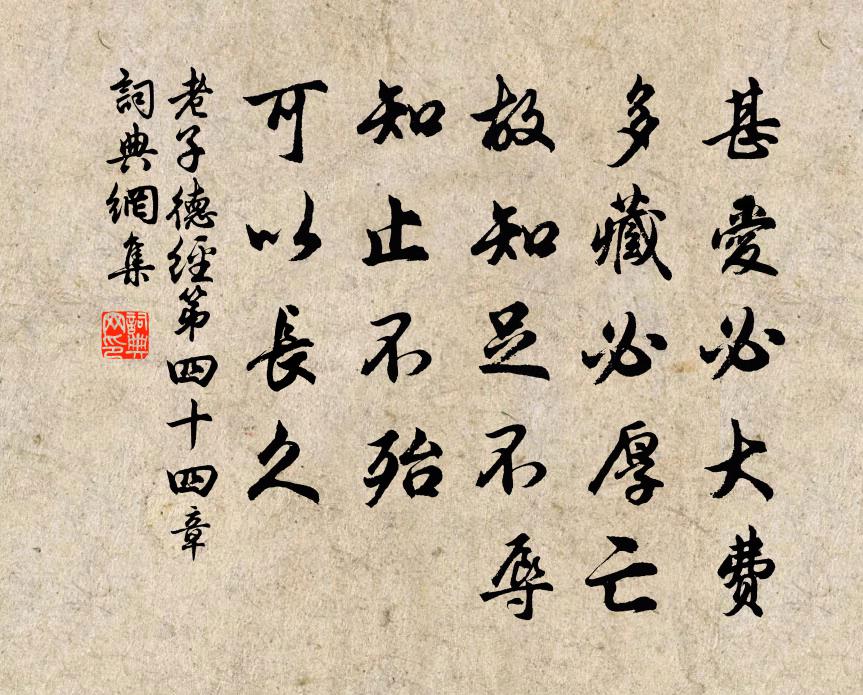 甚愛必大費
多藏必厚亡
故知足不辱
知止不殆
可以長久
老子德經第四十四章
詞典網集
詞典
网印